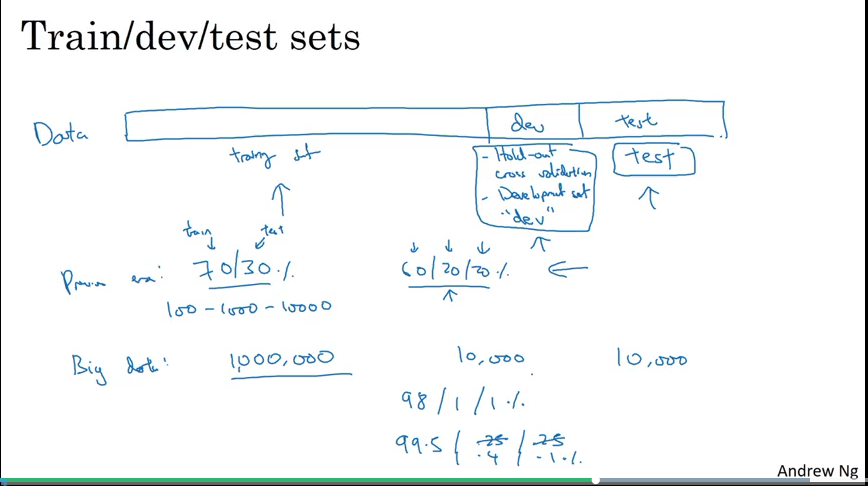 Train/dev/test sets
Data
dev
test
training set
- Hold-out
cross validation
- Development set
"dev"
test
train
test
Previous era:
70/30%
60/20/20%
100-1000-10000
Big data:
1,000,000
10,000
10,000
98/1/1%
99.5/.25/.25
.4 .1%
Andrew Ng